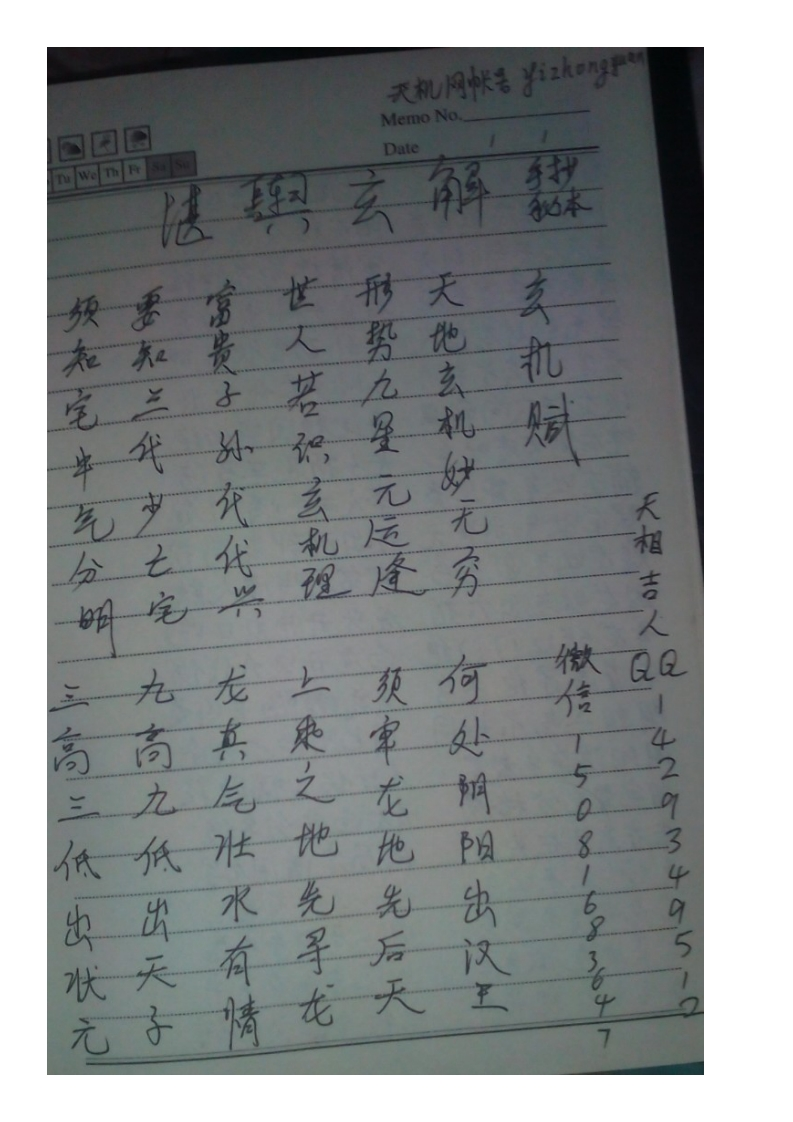 天机网帐号 yizhongyuan
Memo No.
Date
Tu We Th Fr Sa Su
堪舆玄解
手抄
秘本
玄机赋
天地玄机妙无穷
形势九星元运逢
世人若识玄机理
富贵子孙代代兴
要知三代少亡宅
须知宅中气分明
天相吉人
QQ1429349512
微信15081683647
何处阴阳出汉王
须审龙地先后天
上乘之地先寻龙
龙真气壮水有情
九高九低出天子
三高三低出状元